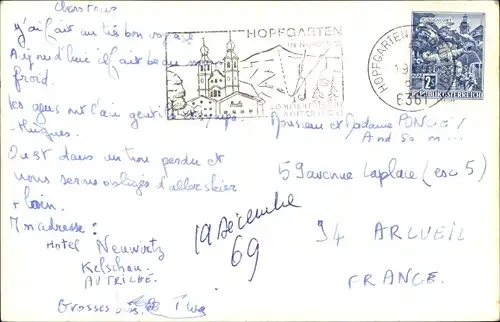 Chers tous
j'ai fait un très bon voyage
Aujourd'hui il fait beau mais
froid.
Les gens ont l'air gentils et sympa-
thiques.
On est dans un trou perdu et
nous serons obligés d'aller skier
+ loin.
Mon adresse :
Hotel Neuwirtz
Kelschau.
AUTRICHE.
Grosses
HOPFGARTEN
IN NORDTIROL
SOMMERFRISCHE
WINTERSPORT
HOPFGARTEN
19
6361
2S
REPUBLIK ÖSTERREICH
Monsieur et Madame PONCET
59 avenue Laplace (esc 5)
94 ARCUEIL
FRANCE.
19 décembre
69